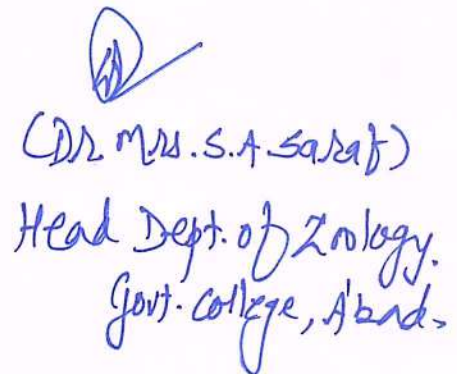 (Dr. Mrs. S.A. Saraf)
Head Dept. of Zoology.
Govt. College, A'bad.